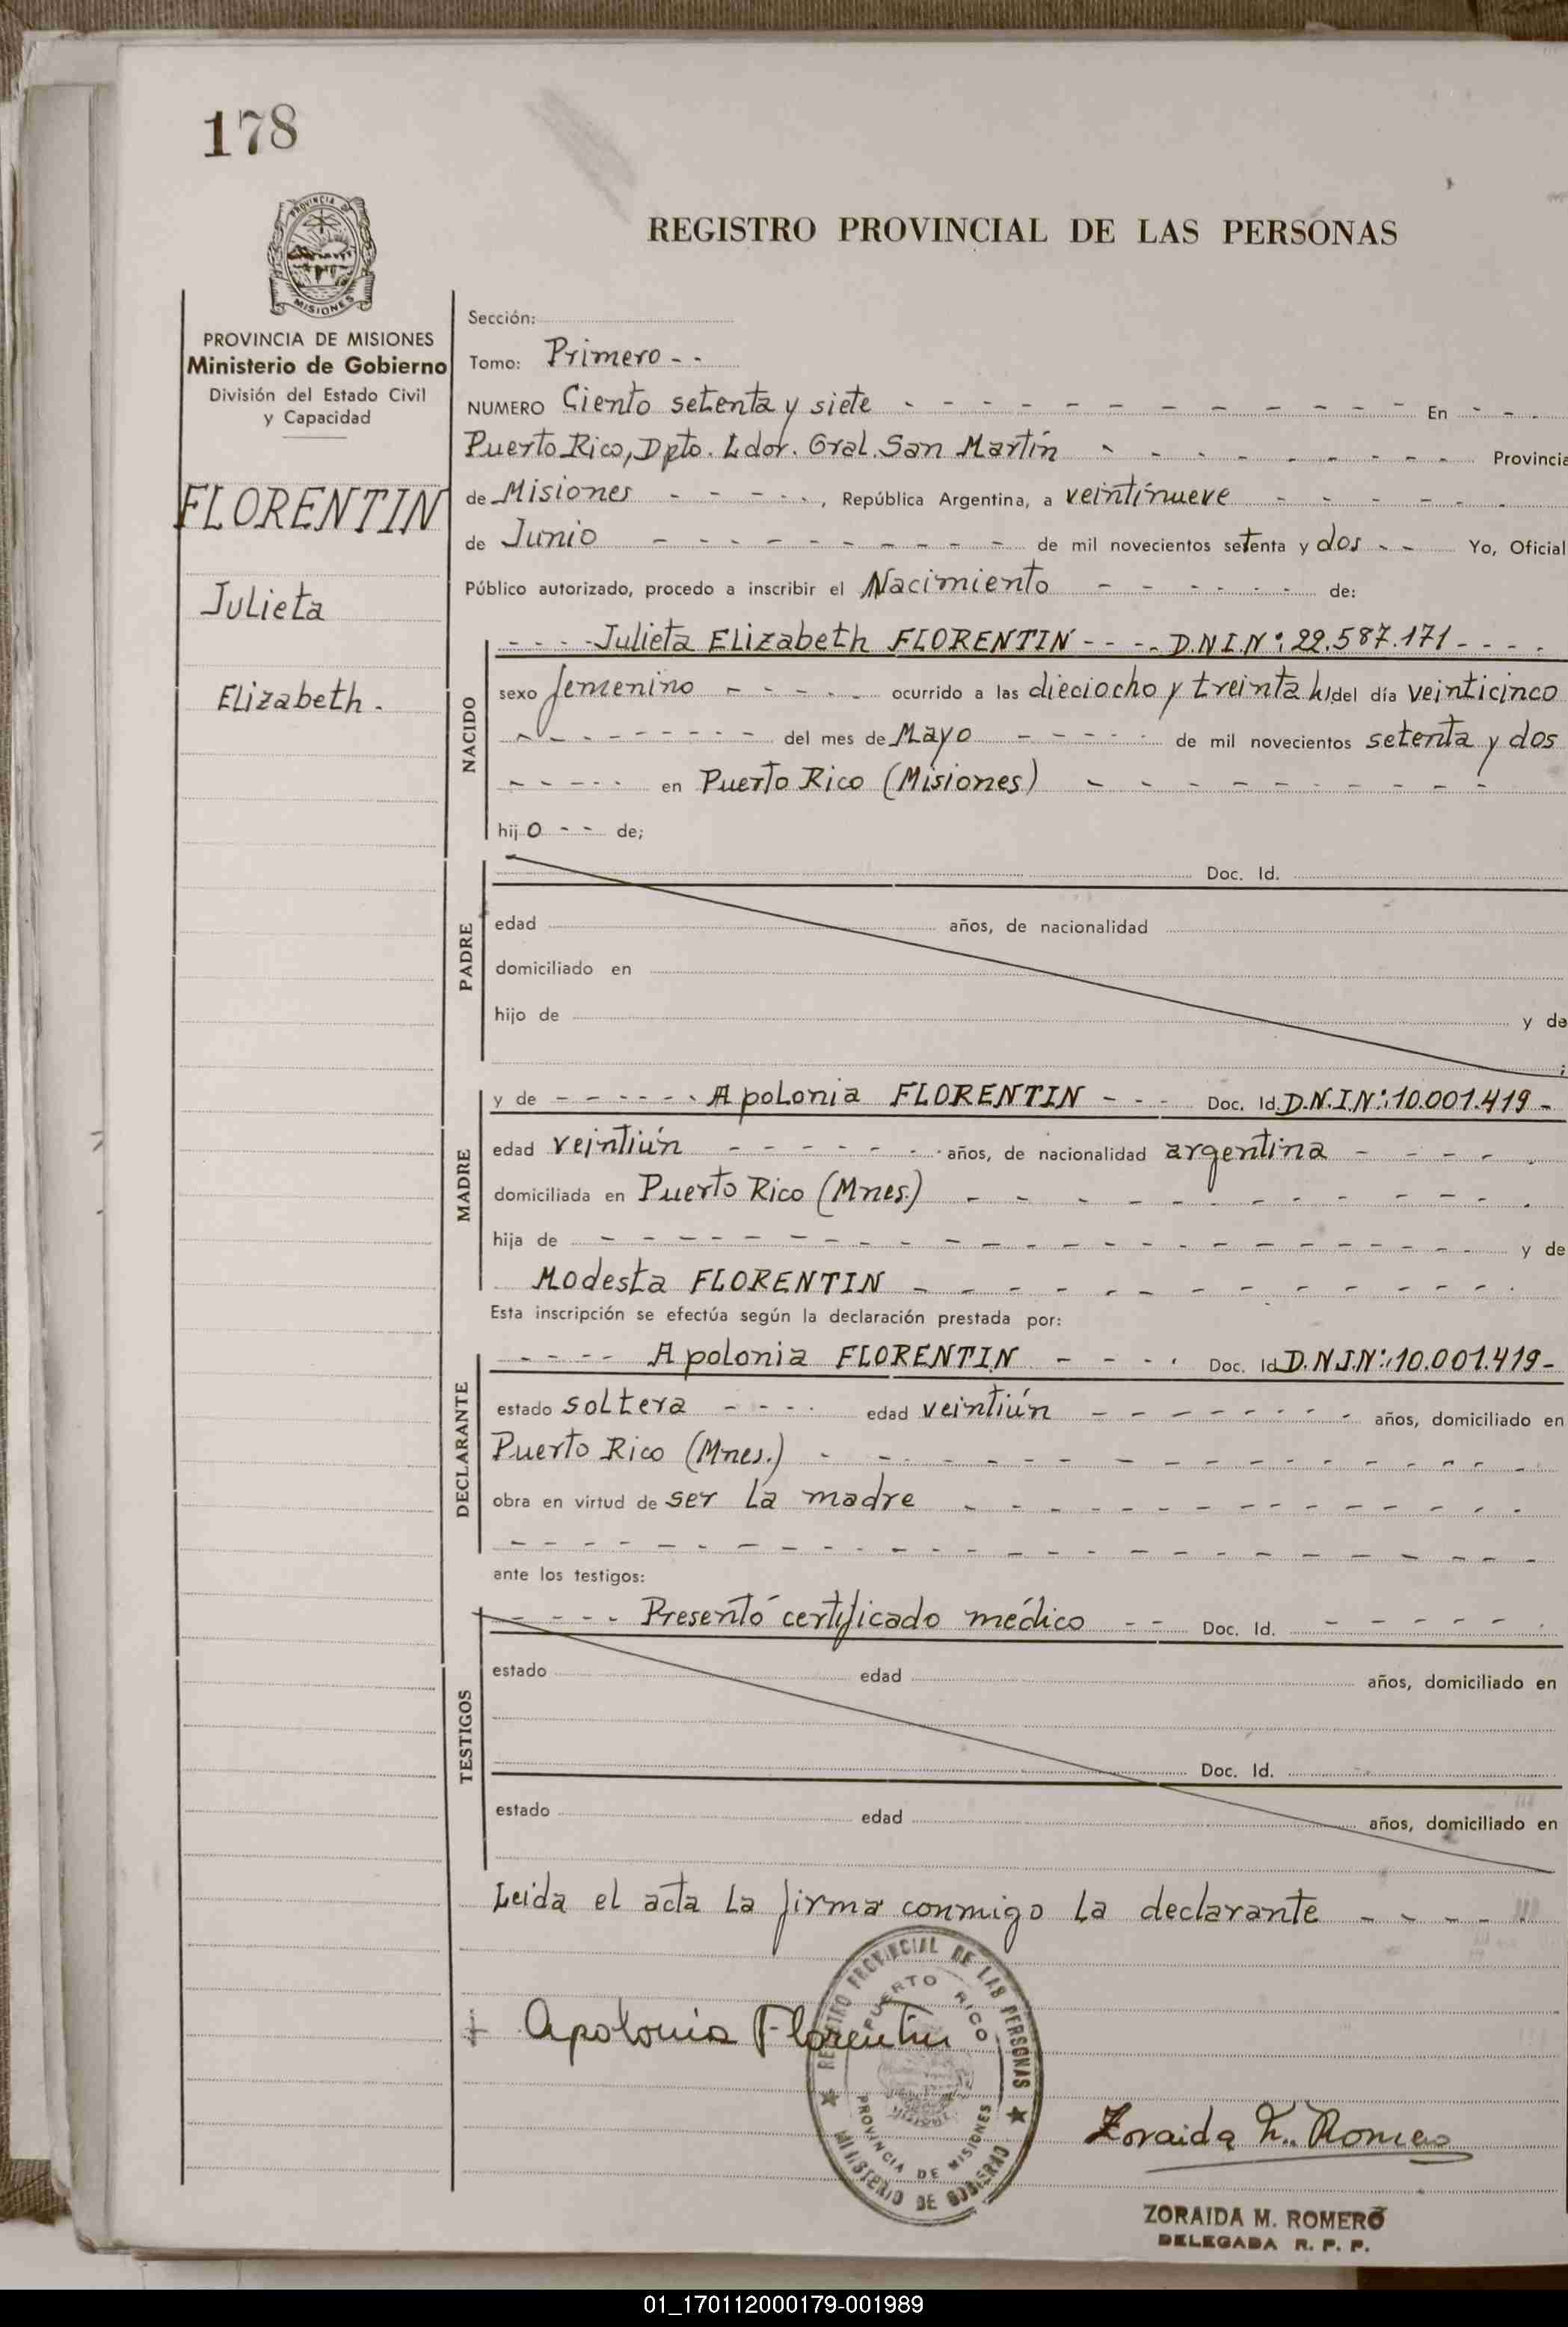 178
PROVINCIA DE
MISIONES
REGISTRO PROVINCIAL DE LAS PERSONAS
PROVINCIA DE MISIONES
Ministerio de Gobierno
División del Estado Civil
y Capacidad
FLORENTIN
Julieta
Elizabeth.
Sección:
Tomo: Primero - -
NUMERO Ciento setenta y siete - - - - - - - - - - - En - - -
Puerto Rico, Dpto. Ldor. Gral. San Martín - - - - - - - - Provincia
de Misiones - - - - -, República Argentina, a veintinueve - - - - - -
de Junio - - - - - - - - - - de mil novecientos setenta y dos - - Yo, Oficial
Público autorizado, procedo a inscribir el Nacimiento - - - - - - de:
NACIDO
- - - - Julieta Elizabeth FLORENTIN - - - - D.N.I.Nº: 22.587.171 - - - -
sexo femenino - - - - - ocurrido a las dieciocho y treinta hs. del día veinticinco
- - - - - - - - - del mes de Mayo - - - - - de mil novecientos setenta y dos
- - - - - en Puerto Rico (Misiones) - - - - - - - - - -
hijo - - de;
PADRE
Doc. Id.
edad años, de nacionalidad
domiciliado en
hijo de y de
;
MADRE
y de - - - - - - Apolonia FLORENTIN - - - Doc. Id. D.N.I.Nº: 10.001.419 -
edad veintiún - - - - - - - años, de nacionalidad argentina - - - - -
domiciliada en Puerto Rico (Mnes.) - - - - - - - - - - - -
hija de - - - - - - - - - - - - - - - - - - - y de
Modesta FLORENTIN - - - - - - - - - - - - -
Esta inscripción se efectúa según la declaración prestada por:
DECLARANTE
- - - - Apolonia FLORENTIN - - - - Doc. Id D.N.I.Nº: 10.001.419 -
estado soltera - - - - edad veintiún - - - - - - - - - años, domiciliado en
Puerto Rico (Mnes.) - - - - - - - - - - - - - - - -
obra en virtud de ser la madre - - - - - - - - - - - - -
- - - - - - - - - - - - - - - - - - - - - - - -
ante los testigos:
TESTIGOS
- - - - Presentó certificado médico - - Doc. Id. - - - - - -
estado edad años, domiciliado en
Doc. Id.
estado edad años, domiciliado en
Leida el acta la firma conmigo la declarante - - - - -
+ Apolonia Florentin
REGISTRO PROVINCIAL DE LAS PERSONAS
PUERTO RICO
PROVINCIA DE MISIONES
★ MINISTERIO DE GOBIERNO ★
Zoraida M. Romero
ZORAIDA M. ROMERO
DELEGADA R. P. P.
01_170112000179-001989